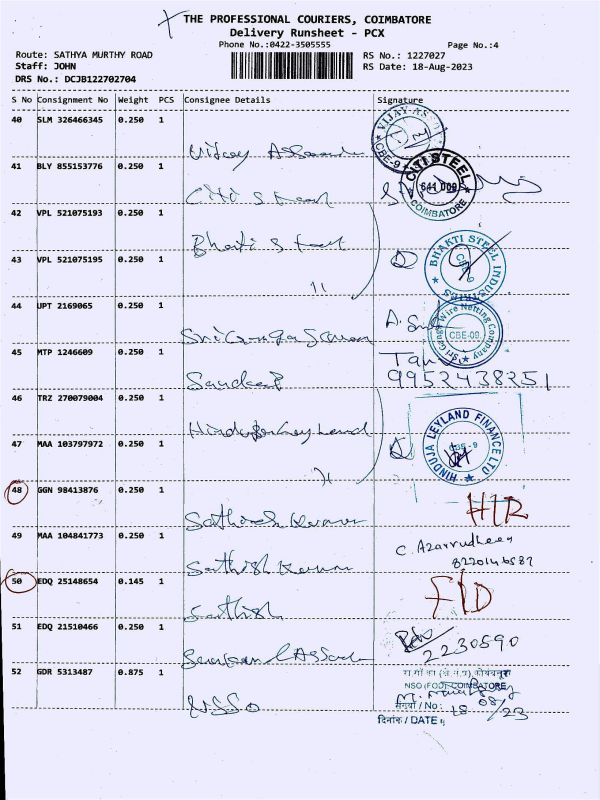 THE PROFESSIONAL COURIERS, COIMBATORE
Delivery Runsheet - PCX
Phone No.:0422-3505555
Page No.:4
Route: SATHYA MURTHY ROAD
RS No.: 1227027
Staff: JOHN
RS Date: 18-Aug-2023
DRS No.: DCJB122702704
S No Consignment No Weight PCS Consignee Details Signature
40 SLM 326466345 0.250 1
VIJAY AS
CBE-9
41 BLY 855153776 0.250 1
Citi Steel
CITI STEEL
641 009
COIMBATORE
42 VPL 521075193 0.250 1
Bhakti Steel
43 VPL 521075195 0.250 1
11
BHAKTI STEEL INDUS
44 UPT 2169065 0.250 1
Wire Netting Company
CBE-09
45 MTP 1246609 0.250 1
Sandeep
9952438251
46 TRZ 270079004 0.250 1
Hinduja Leyland
HINDUJA LEYLAND FINANCE LTD
CBE-9
47 MAA 103797972 0.250 1
48 GGN 98413876 0.250 1
Sathish Kumar
49 MAA 104841773 0.250 1
Sathish Kumar
C. Azarrudheen
50 EDQ 25148654 0.145 1
Sathish
51 EDQ 21510466 0.250 1
2230590
52 GDR 5313487 0.875 1
NSSO
NSO (FOD) COIMBATORE
संख्या / No :
18 08/23
दिनांक / DATE :